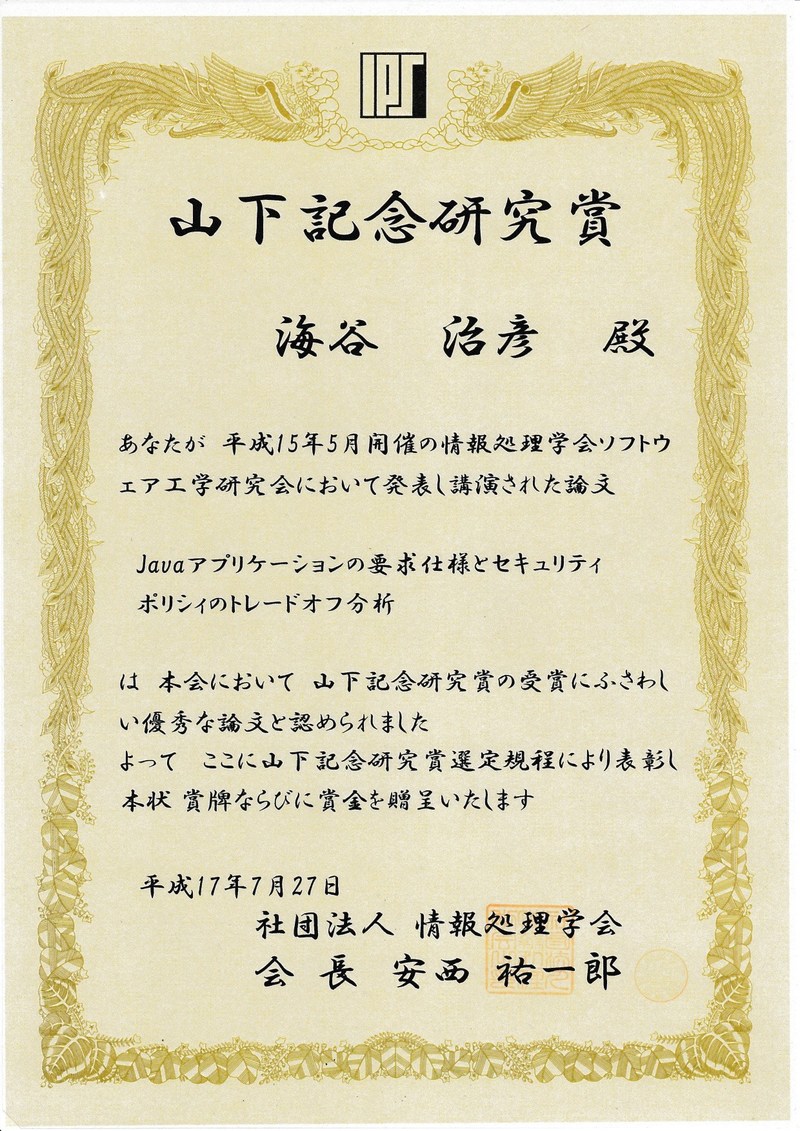 IPSJ
山下記念研究賞
海谷 治彦 殿
あなたが 平成15年5月開催の情報処理学会ソフトウ
ェア工学研究会において発表し講演された論文
Javaアプリケーションの要求仕様とセキュリティ
ポリシィのトレードオフ分析
は 本会において 山下記念研究賞の受賞にふさわし
い優秀な論文と認められました
よって ここに山下記念研究賞選定規程により表彰し
本状 賞牌ならびに賞金を贈呈いたします
平成17年7月27日
社団法人 情報処理学会
会長 安西 祐一郎